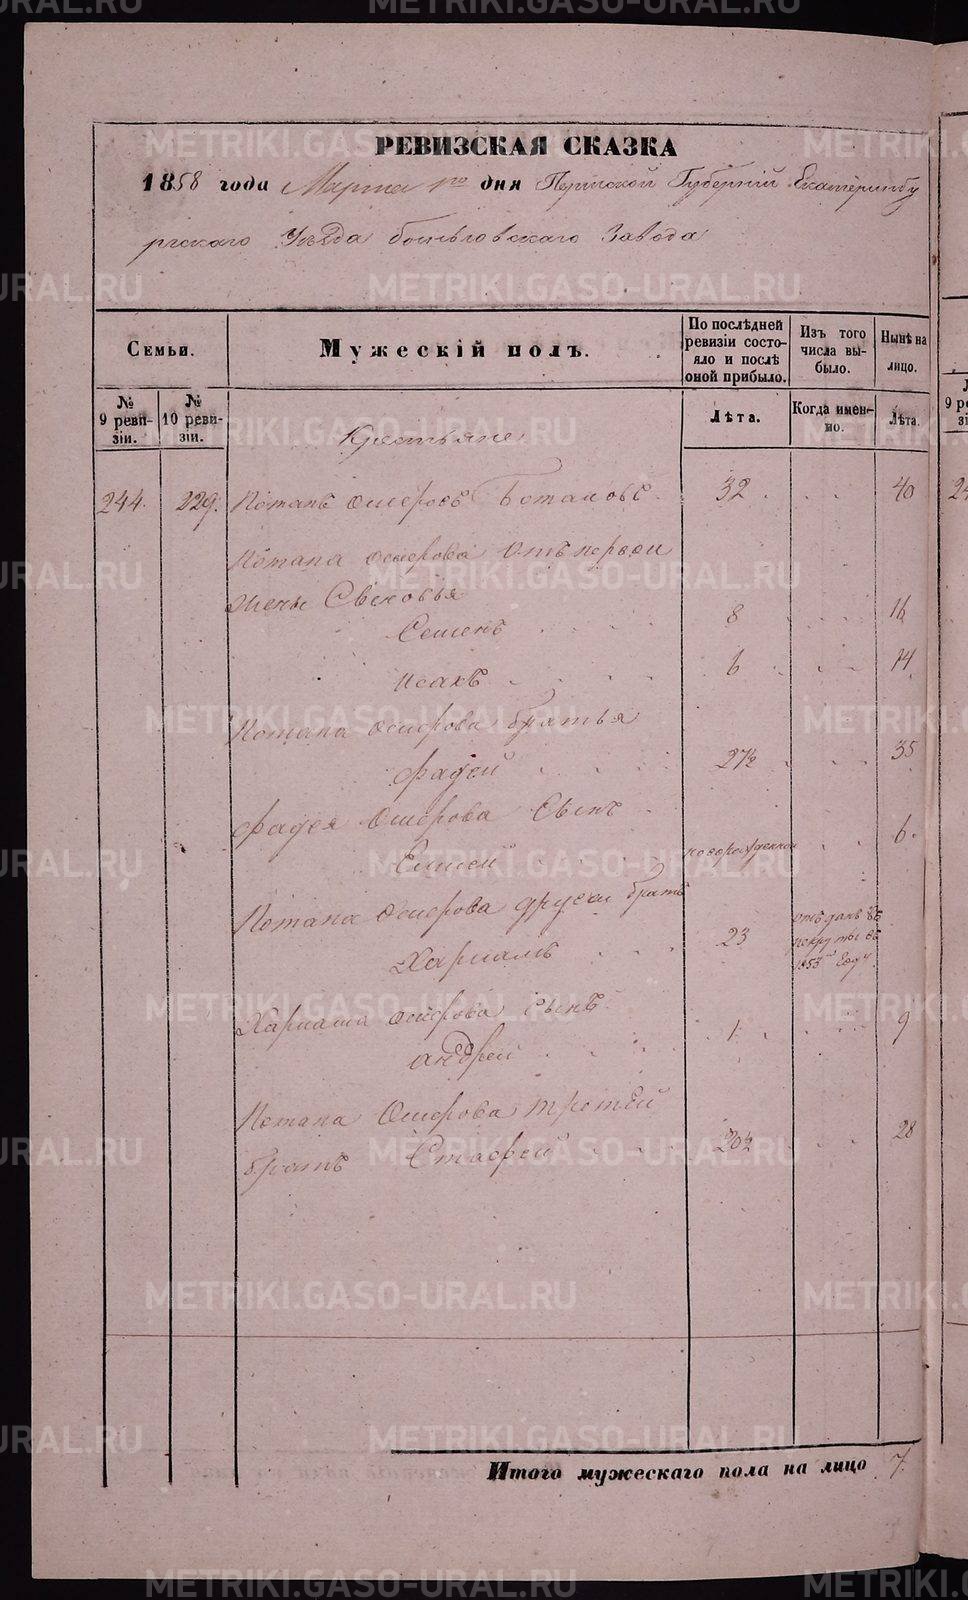 РЕВИЗСКАЯ СКАЗКА
1858 года Марта 1го дня Пермской Губерній Екатеринбу
ргскаго Уѣзда Завода
Семьи.
Мужескій полъ.
По послѣдней ревизіи состояло и послѣ оной прибыло.
Изъ того числа выбыло.
Нынѣ на лицо.
№ 9 ревизіи.
№ 10 ревизіи.
Лѣта.
Когда именно.
Лѣта.
Крестьяне
244. 229. Потапъ Боталовъ 32 40
Потапа отъ первой
жены Сыновья
Семенъ 8 16
Исакъ 6 14
Потапа братья
Фадей 27½ 35
Фадея Сынъ
Елисей новорожденной 6
Потапа другой братъ
Харламъ 23 отъданъ въ рекруты въ 1853 году
Харлама Сынъ
Андрей 1 9
Потапа третей
братъ 20½ 28
Итого мужескаго пола на лицо 7.
METRIKI.GASO-URAL.RU